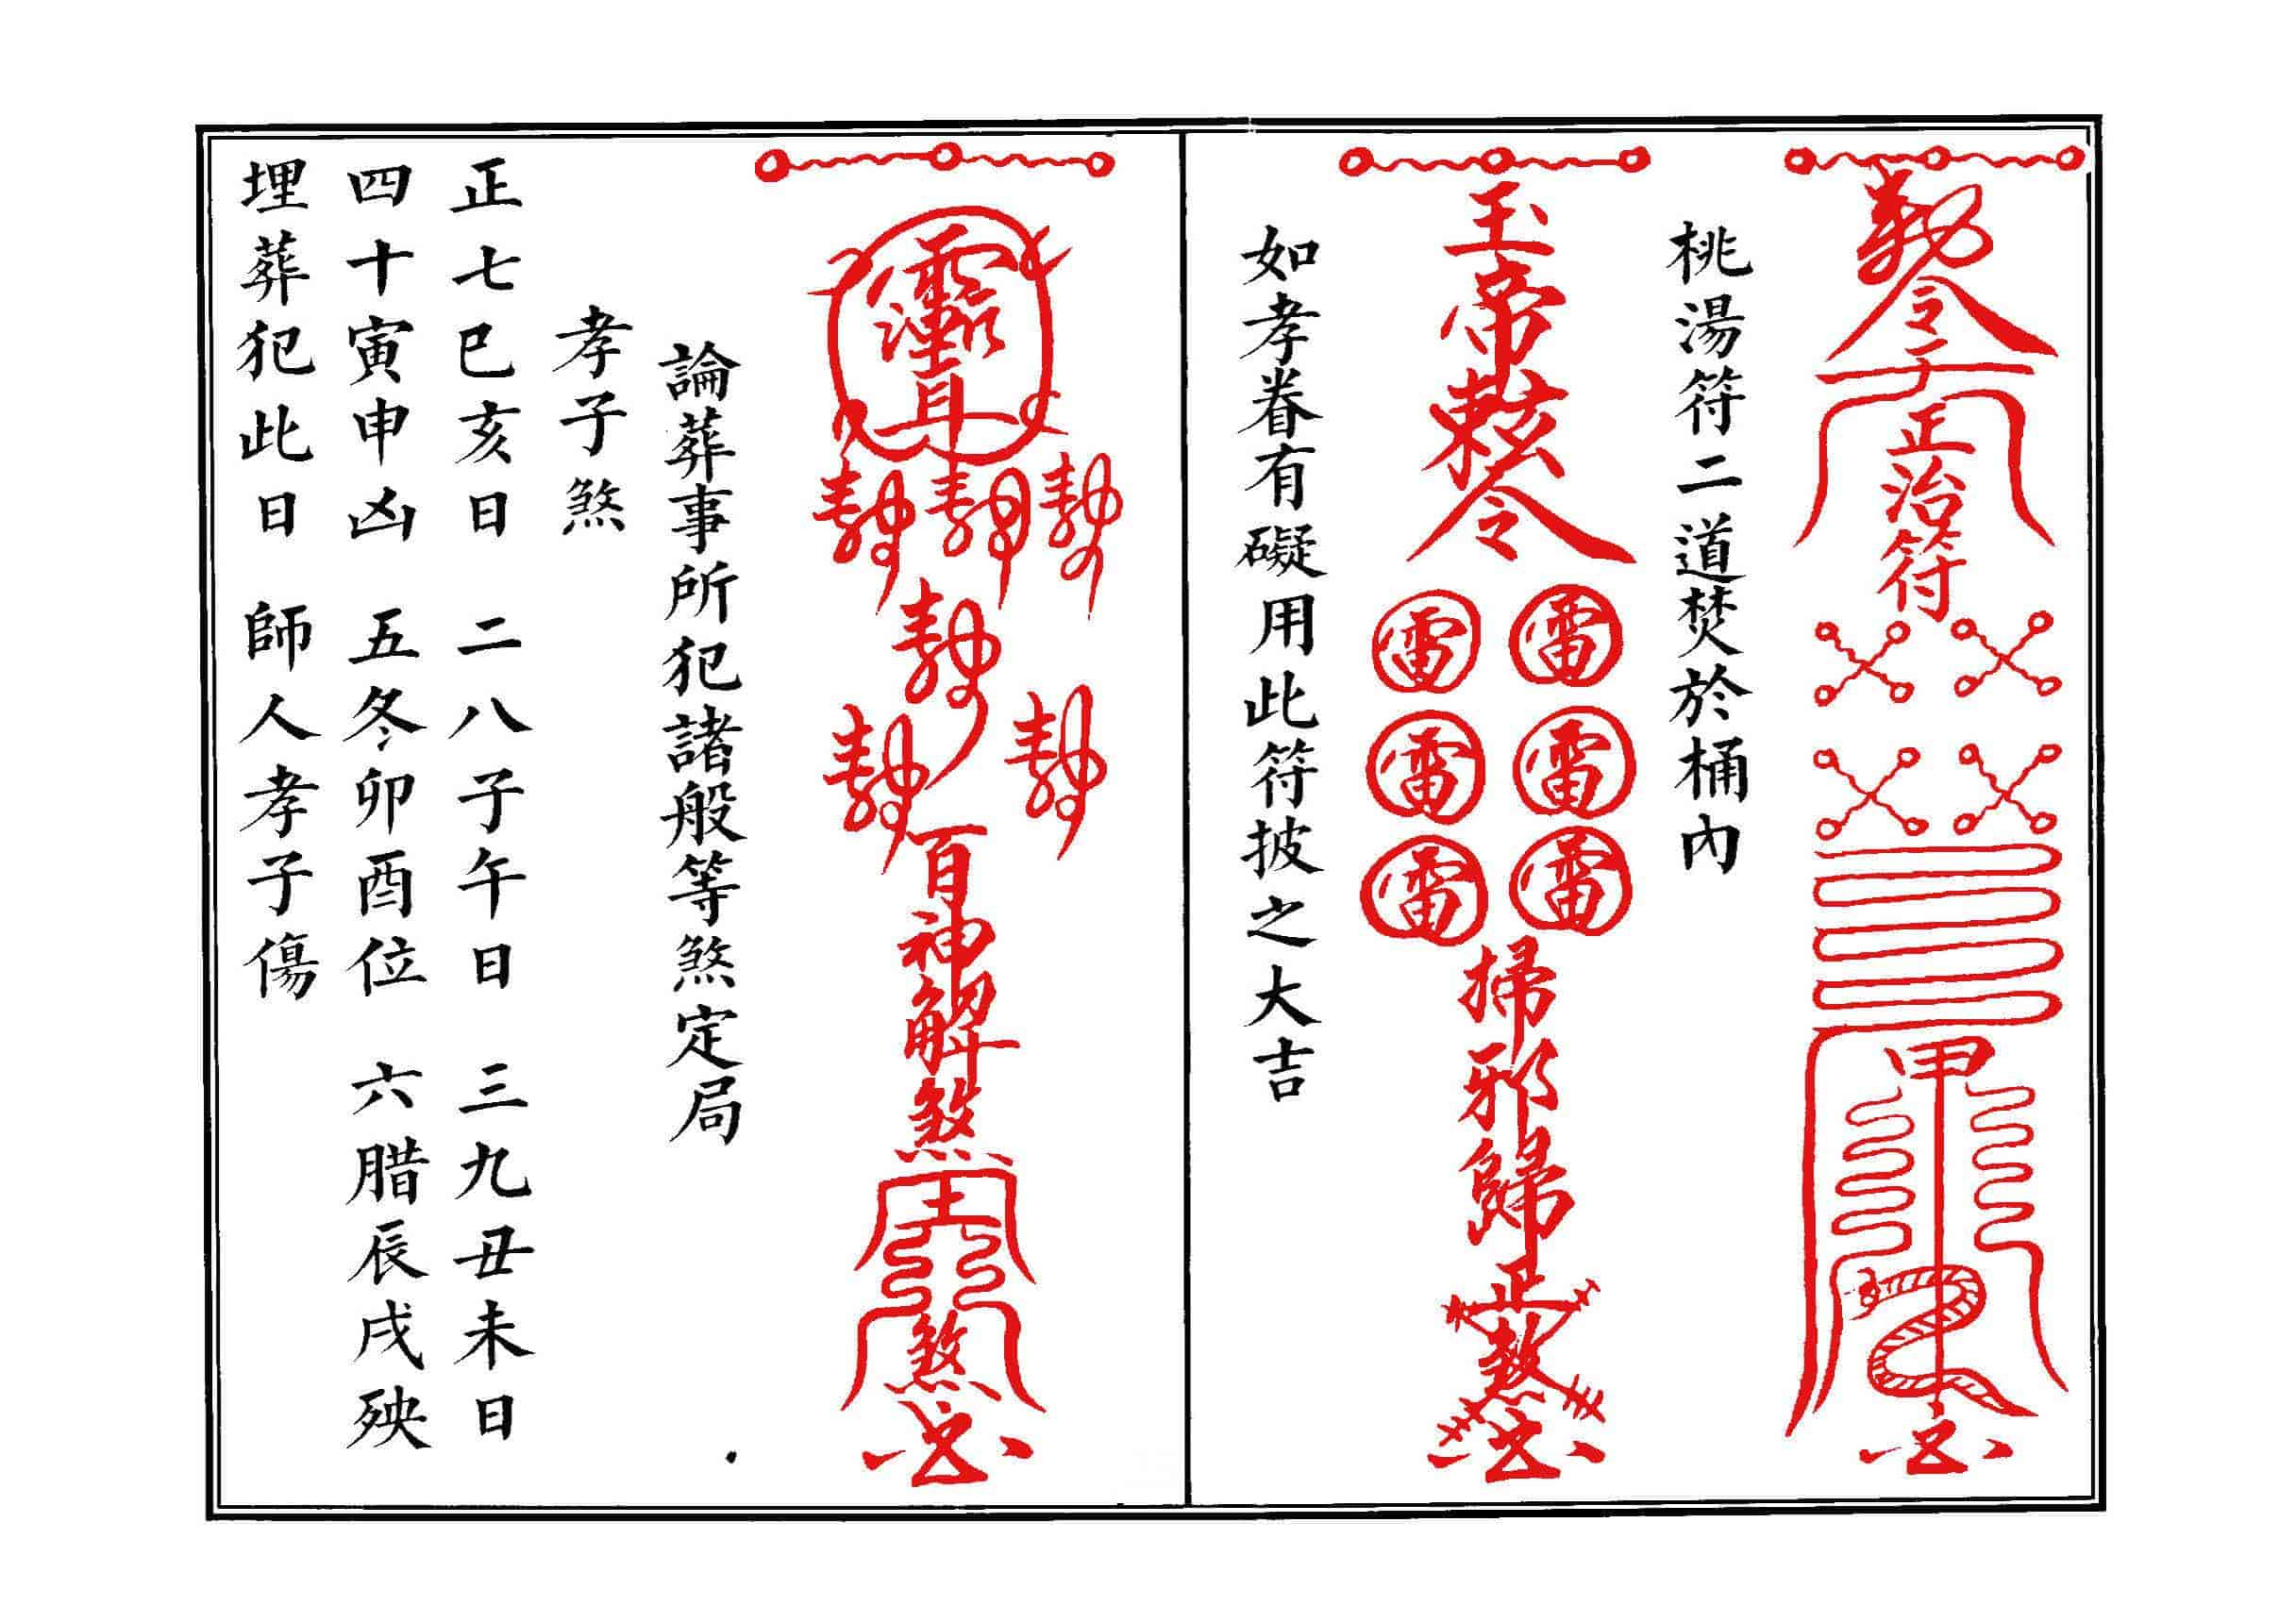 勅令
正治符
甲
桃湯符二道焚於桶內
玉帝敕令
雷雷
雷雷
雷雷
掃邪歸正煞
如孝眷有礙用此符披之大吉
百神解煞
煞
論葬事所犯諸般等煞定局
孝子煞
正七巳亥日 二八子午日 三九丑未日
四十寅申凶 五冬卯酉位 六腊辰戌殃
埋葬犯此日 師人孝子傷